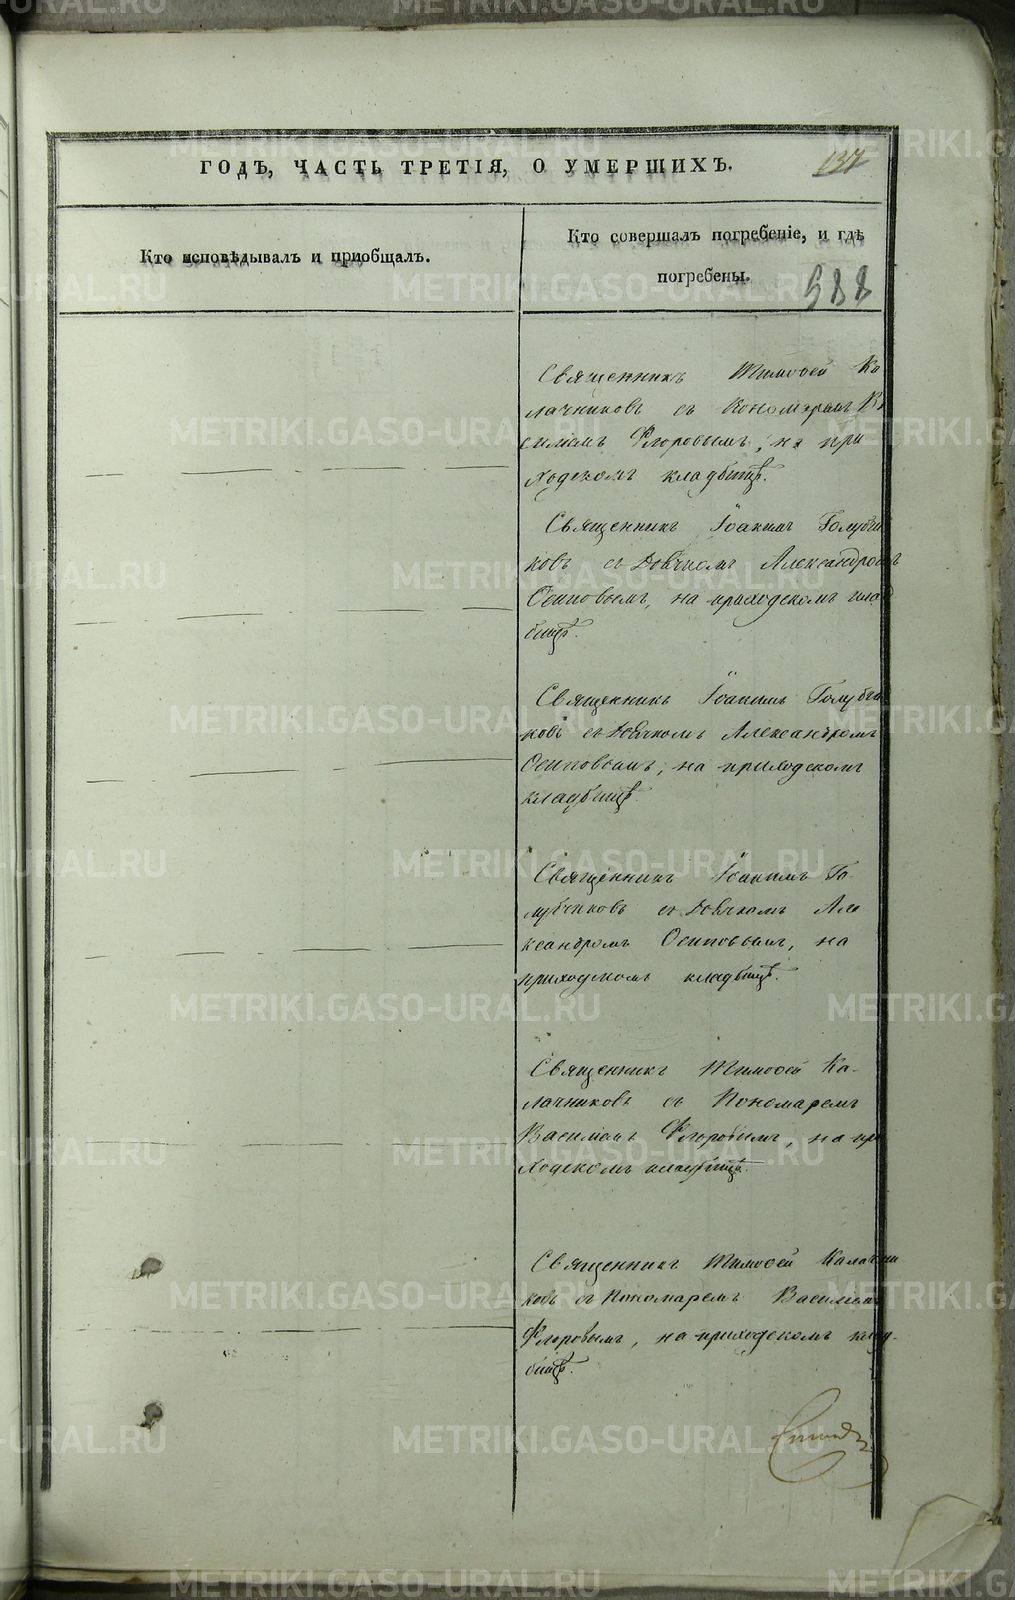 ГОДЪ, ЧАСТЬ ТРЕТІЯ, О УМЕРШИХЪ.
137
Кто исповѣдывалъ и пріобщалъ.
Кто совершалъ погребеніе, и гдѣ
погребены.
588
Священникъ Тимофей Ка
лачниковъ съ Пономаремъ Ва
силіемъ Флоровымъ, на при
ходскомъ кладбищѣ.
Священникъ Іоакимъ Голубчи
ковъ съ Дьячкомъ Александромъ
Осиповымъ, на приходскомъ клад
бищѣ.
Священникъ Іоакимъ Голубчи
ковъ съ Дьячкомъ Александромъ
Осиповымъ, на приходскомъ
кладбищѣ.
Священникъ Іоакимъ Го-
лубчиковъ съ Дьячкомъ Але
ксандромъ Осиповымъ, на
приходскомъ кладбищѣ.
Священникъ Тимофей Ка-
лачниковъ съ Пономаремъ
Василіемъ Флоровымъ, на при
ходскомъ кладбищѣ.
Священникъ Тимофей Калачни
ковъ съ Пономаремъ Василіемъ
Флоровымъ, на приходскомъ клад-
бищѣ.
METRIKI.GASO-URAL.RU